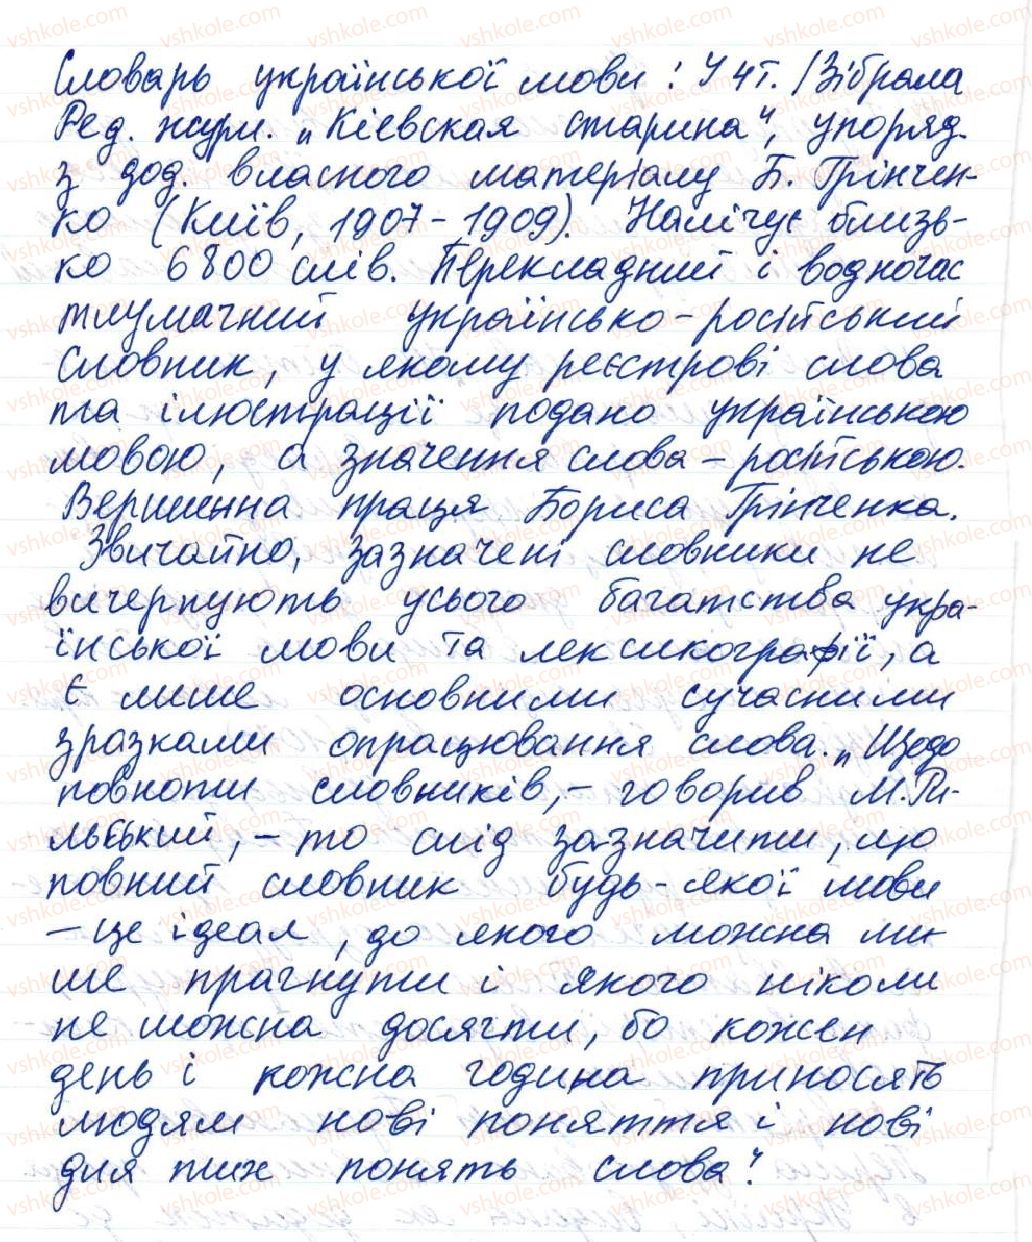 Словарь української мови: У 4т. /Зібрала
Ред. журн. „Кіевская старина", упоряд.
з дод. власного матеріалу Б. Грінчен-
ко (Київ, 1907-1909). Налічує близь-
ко 6800 слів. Перекладний і водночас
тлумачний українсько-російський
словник, у якому реєстрові слова
та ілюстрації подано українською
мовою, а значення слова - російською.
Вершинна праця Бориса Грінченка.
Звичайно, зазначені словники не
вичерпують усього багатства укра-
їнської мови та лексикографії, а
є лише основними сучасними
зразками опрацювання слова. „Щодо
повноти словників, - говорив М. Ри-
льський, - то слід зазначити, що
повний словник будь-якої мови
- це ідеал, до якого можна ли-
ше прагнути і якого ніколи
не можна досягти, бо кожен
день і кожна година приносять
людям нові поняття і нові
для тих понять слова".